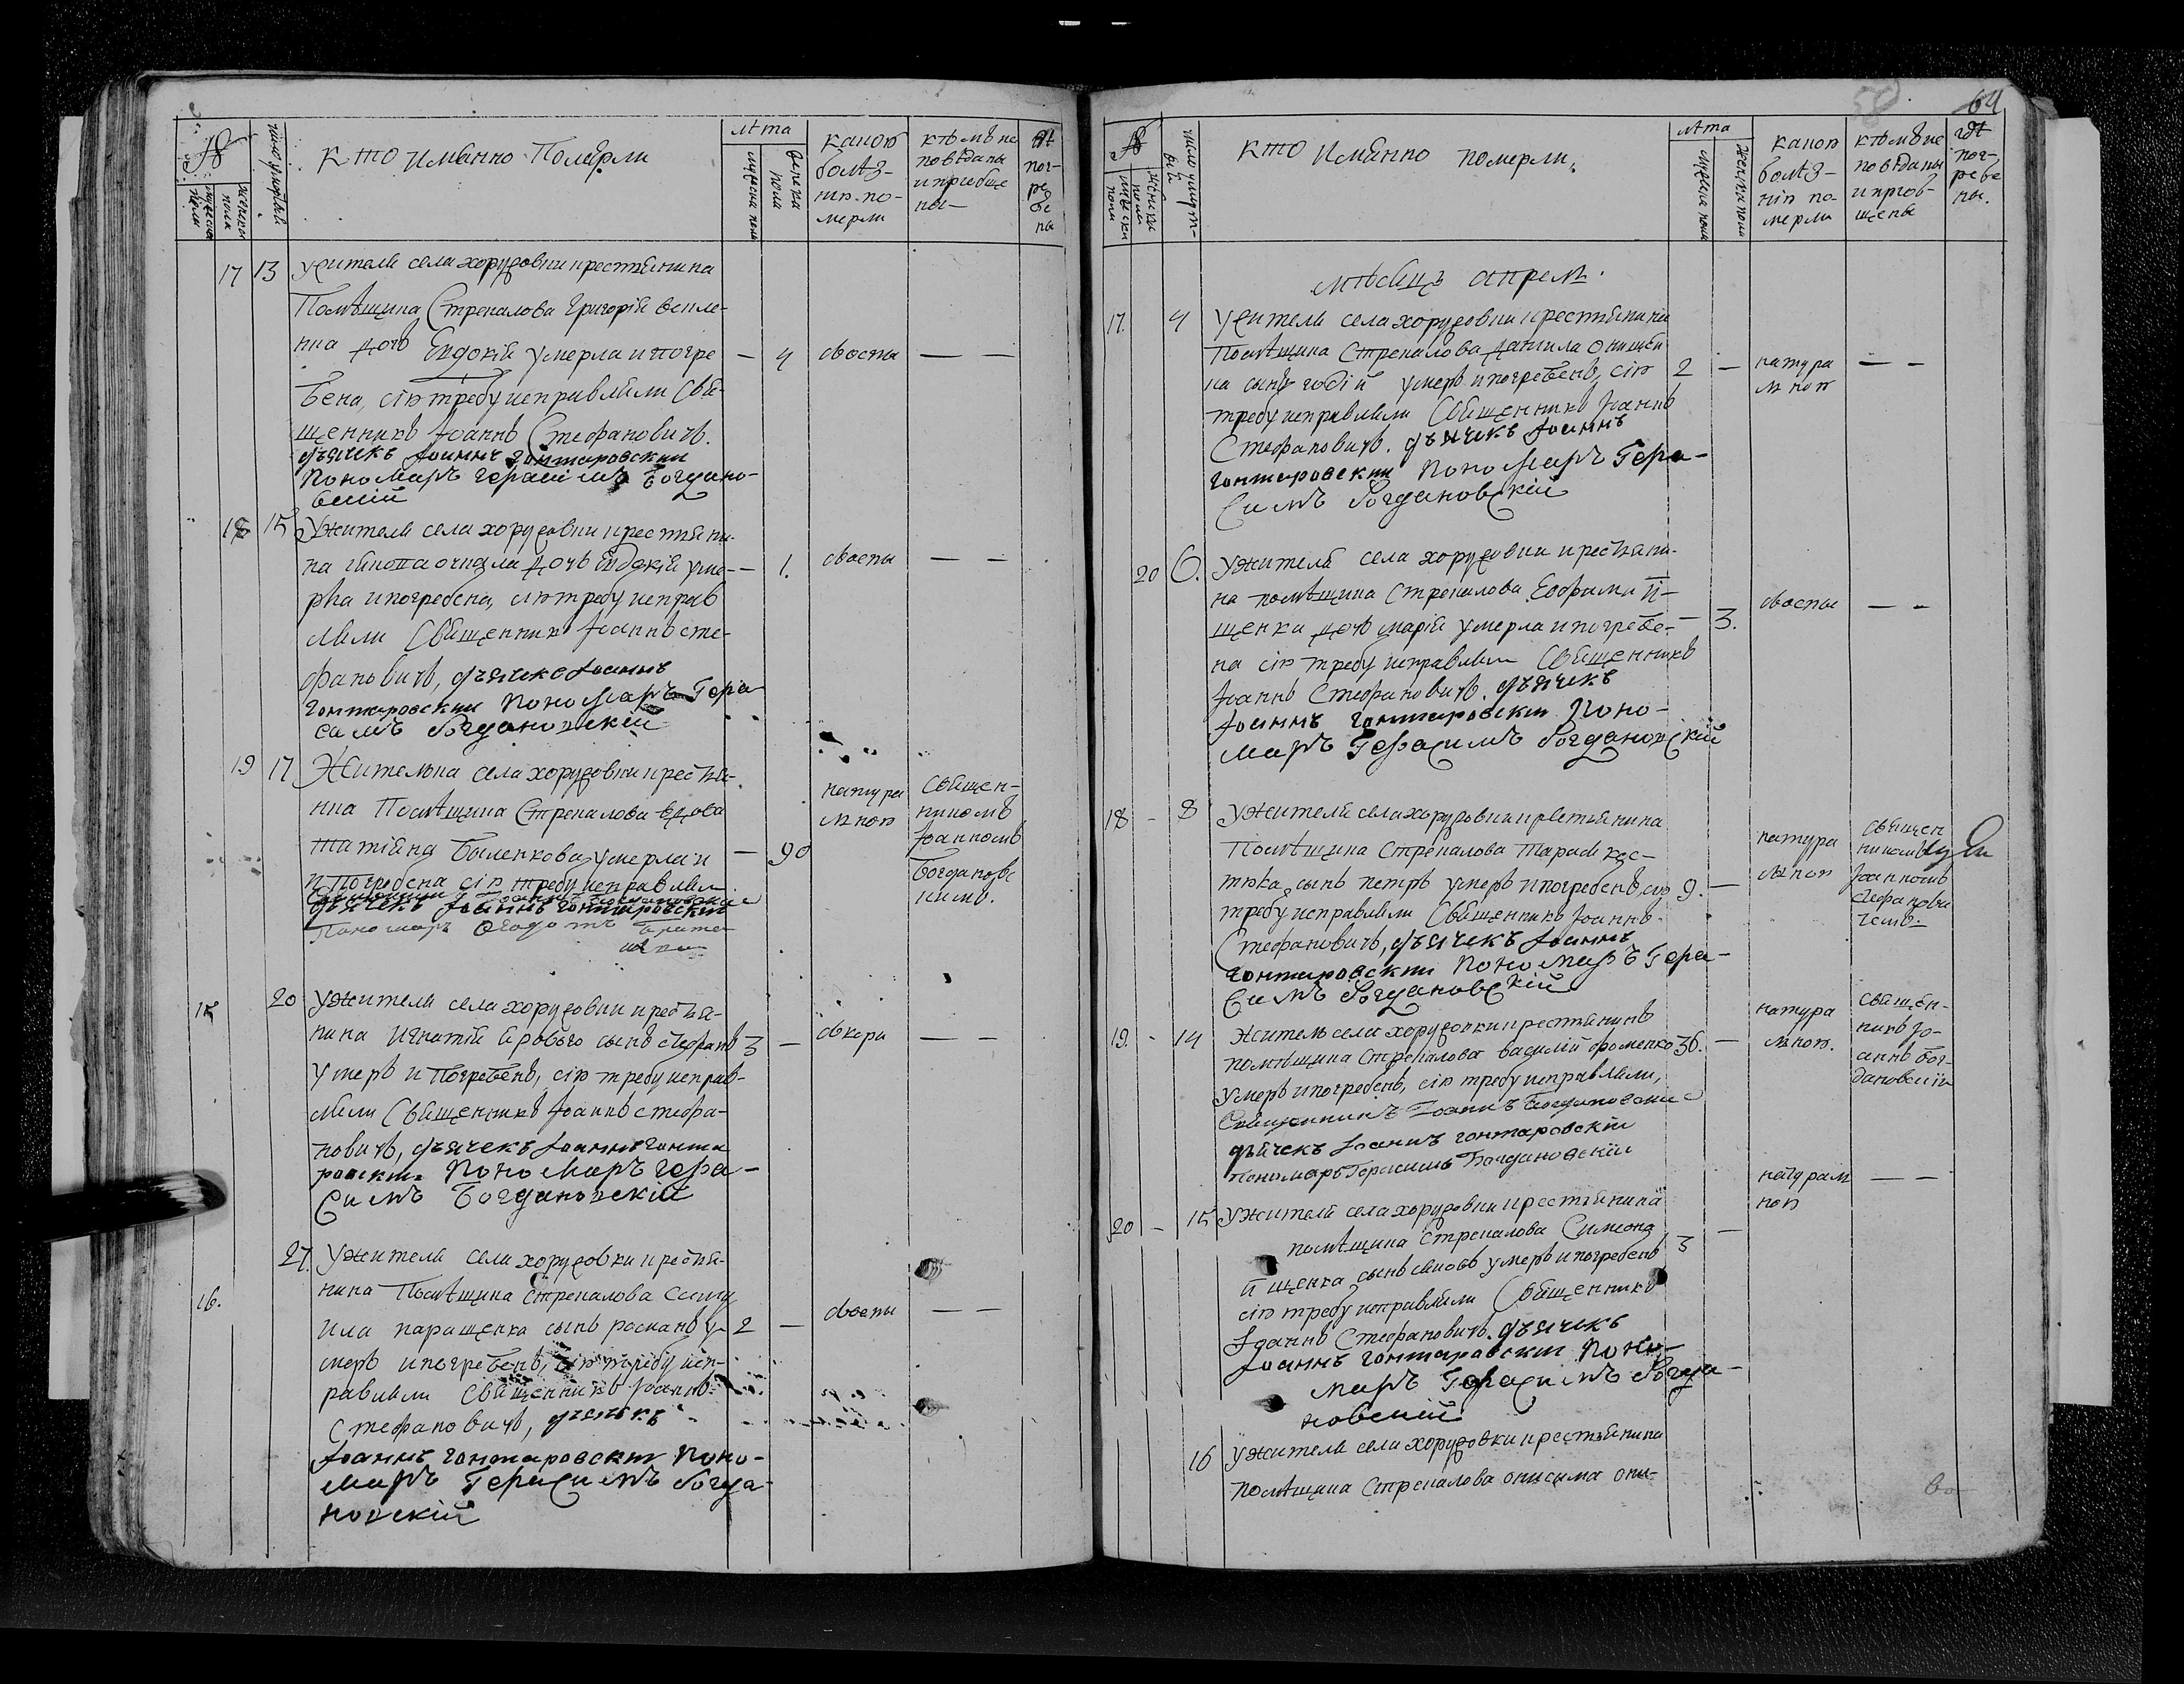 №
мужеска пола
женска пола
число умертвій
кто имянно Померли
лѣта
мужеска пола
женска пола
какою
болѣз-
нію по-
мерли
кѣмъ ис
повѣданы
и пріобще
ны
гдѣ
пог-
ре
бе
ны
17 13 Ужителя села хоружовки крестьянина
Помѣщика Стрекалова Григорія
дочь Евдокія умерла и погре — 4 воспы — —
бена, сію требу исправляли Свя-
щенникъ Іоаннъ Стефановичъ.
дьячекъ Іоаннъ Гонтаровскии
Пономаръ Герасимъ Богдано-
вский
18 15 Ужителя села хоружовки крестьяни-
на дочь Евдокія уме- — 1. воспы — —
рла и погребена, сію требу исправ
ляли Священникъ Іоаннъ Сте-
фановичъ, дьячекъ Іоаннъ
Гонтаровскии Пономаръ Гера
симъ Богдановскій
19 17 Жителька села хоружовки крестья-
нка Помѣщика Стрекалова вдова
Татіяна Быленкова умерла и — 90
и погребена сію требу исправляли
Священникъ Іоаннъ Богдановский
дьячекъ Іоаннъ Гонтаровскии
Пономаръ
натура
лною
Священ-
никомъ
Іоанномъ
Богданов
кимъ.
15 20 Ужителя села хоружовки крестья-
нина Игнатія Ярового сынъ Стефанъ 3 — — —
умеръ и погребенъ, сію требу исправ-
ляли Священникъ Іоаннъ Стефа-
новичъ, дьячекъ Іоаннъ Гонта
ровскии Пономаръ Гера-
симъ Богдановскій
16. 27. Ужителя села хоружовки крестья-
нина Помѣщика Стрекалова
паращенка сынъ романъ у- 2 — воспы — —
меръ и погребенъ, сію требу исп-
равляли Священникъ Іоаннъ
Стефановичъ, дьячекъ
Іоаннъ Гонтаровскии Поно-
маръ Герасимъ Богда-
новскій
50 64
№
мужеска пола
женска пола
число умерт-
вій
кто имянно померли.
лѣта
мужеска пола
женска пола
какою
болѣз-
нію по-
мерли
кѣмъ ис
повѣданы
и пріоб-
щены
гдѣ
пог-
ребе
ны.
мѣсяцъ апрель.
17. 4 Ужителя села хоружовки крестьянина
Помѣщика Стрекалова данила онищен
ка сынъ умеръ и погребенъ, сію 2 — натура — —
лною
требу исправляли Священникъ Іоаннъ
Стефановичъ. дьячекъ Іоаннъ
Гонтаровскии Пономаръ Гера-
симъ Богдановскій
20 6. Ужителя села хоружовки крестьяни-
на помѣщика Стрекалова Ефрима И-
щенка дочь марія умерла и погребе- — 3. воспы — —
на сію требу исправляли Священникъ
Іоаннъ Стефановичъ. дьячекъ
Іоаннъ Гонтаровскии Поно-
маръ Герасимъ Богдановскій
18 - 8 Ужителя села хоружовки крестьянина
Помѣщика Стрекалова Тараса кос-
тюка сынъ петръ умеръ и погребенъ, сію 9. —
требу исправляли Священникъ Іоаннъ
Стефановичъ, дьячекъ Іоаннъ
Гонтаровскии Пономаръ Гера-
симъ Богдановскій
натура
лною
священ
никомъ
Іоанномъ
Стефанови
чемъ.
19. - 14 Житель села хоружовки крестьянинъ
помѣщика Стрекалова василій фоменко 36. —
умеръ и погребенъ, сію требу исправляли,
Священникъ Іоаннъ Богдановский
дьячекъ Іоаннъ Гонтаровскій
пономаръ Герасимъ Богдановскій
натура
лною.
священ-
никъ Іо-
аннъ Бог-
дановскій
20 - 15 Ужителя села хоружовки крестьянина
помѣщика Стрекалова Симеона 3 — натурал — —
ною
Ищенка сынъ умеръ и погребенъ
сію требу исправляли Священникъ
Іоаннъ Стефановичъ. дьячекъ
Іоаннъ Гонтаровскии Поно-
маръ Герасимъ Богда-
новский
16 Ужителя села хоружовки крестьянина
помѣщика Стрекалова онисима они-